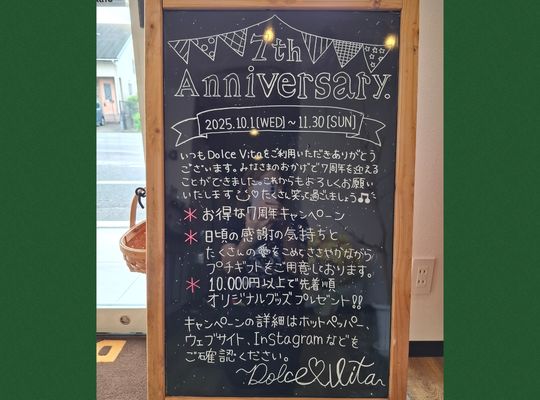 7th
Anniversary.
2025.10.1[WED]～11.30[SUN]
いつもDolce Vitaをご利用いただきありがとう
ございます。みなさまのおかげで7周年を迎える
ことができました。これからもよろしくお願い
いたします♡たくさん笑って過ごしましょう♫
＊お得な7周年キャンペーン
＊日頃の感謝の気持ちと
たくさんの愛をこめてささやかながら
プチギフトをご用意しております。
＊10.000円以上で先着順
オリジナルグッズプレゼント!!
キャンペーンの詳細はホットペッパー、
ウェブサイト、Instagramなどを
ご確認ください。
Dolce♡Vita